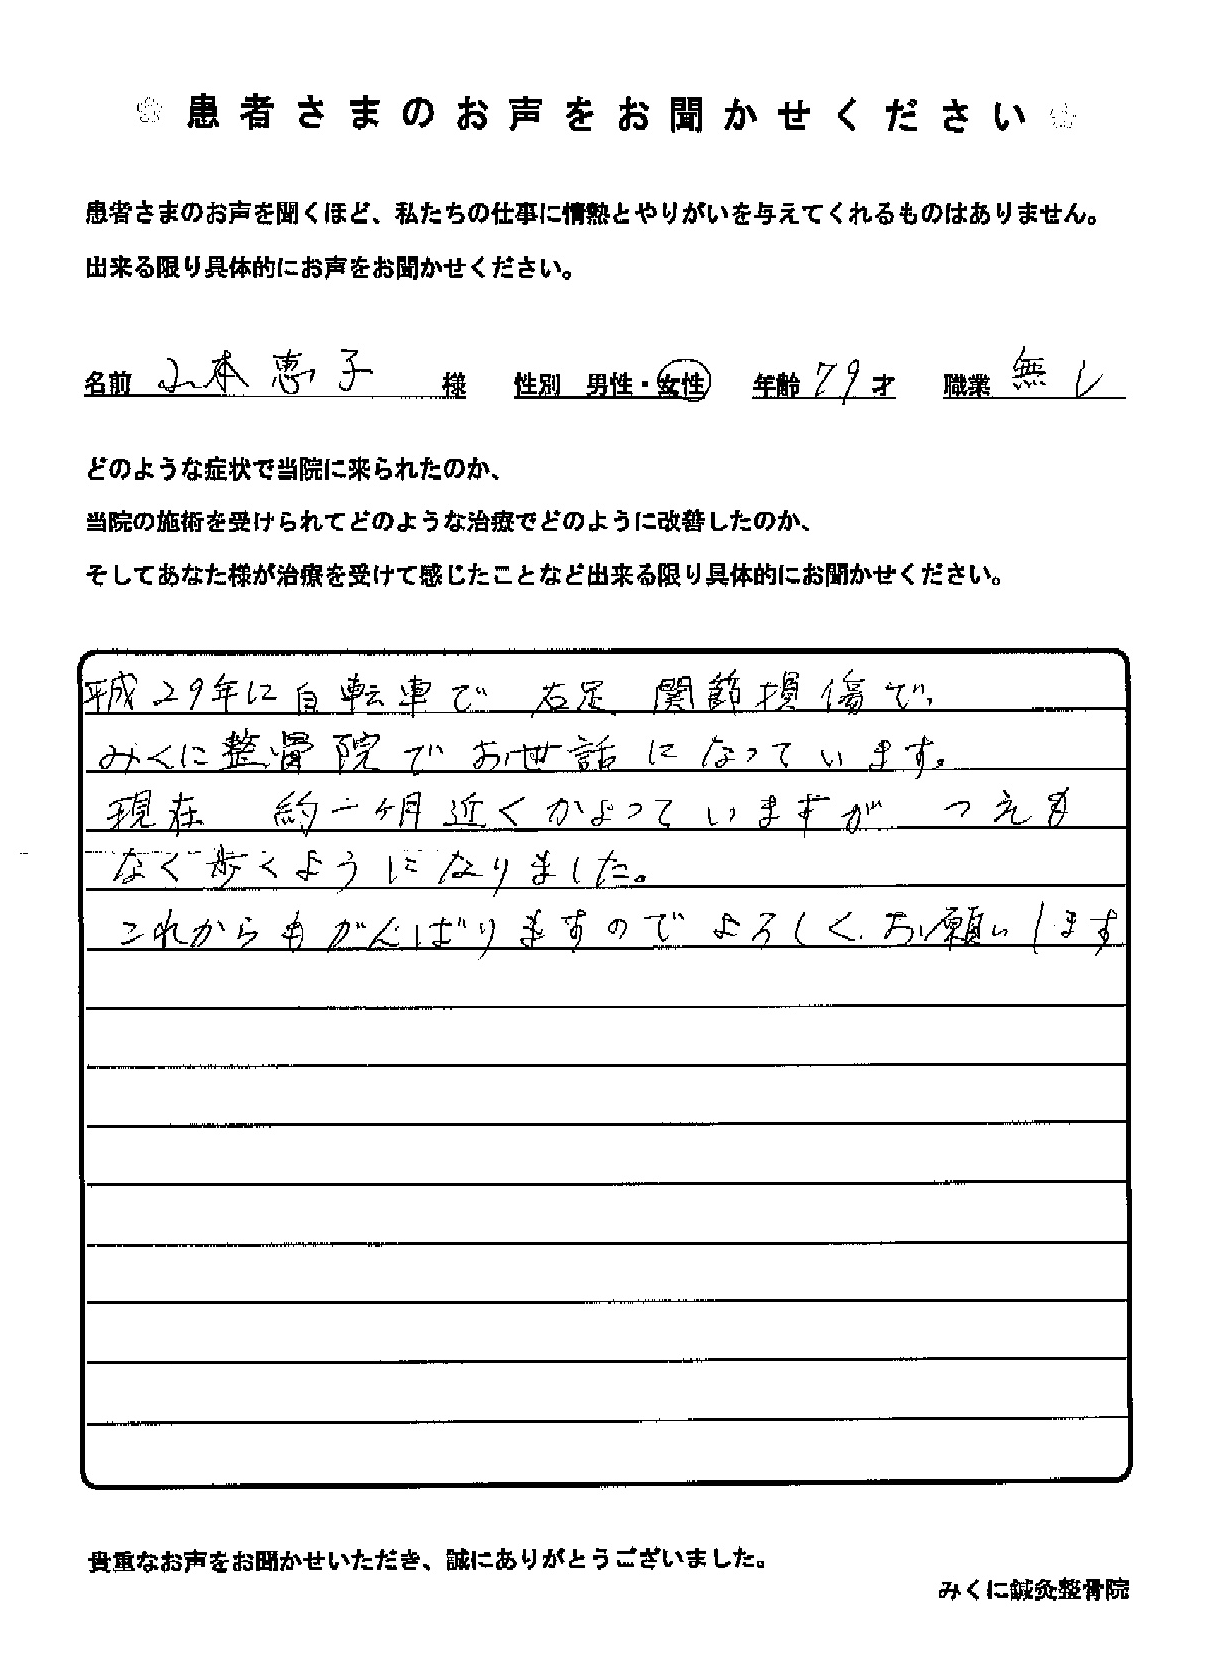 患者さまのお声をお聞かせください
患者さまのお声を聞くほど、私たちの仕事に情熱とやりがいを与えてくれるものはありません。
出来る限り具体的にお声をお聞かせください。
名前 山本恵子 様 性別 男性・女性 年齢 79 才 職業 無し
どのような症状で当院に来られたのか、
当院の施術を受けられてどのような治療でどのように改善したのか、
そしてあなた様が治療を受けて感じたことなど出来る限り具体的にお聞かせください。
平成29年に自転車で 右足 関節損傷で、
みくに整骨院でお世話になっています。
現在 約一ヶ月近くかよっていますが つえも
なく歩くようになりました。
これからもがんばりますのでよろしくお願いします
貴重なお声をお聞かせいただき、誠にありがとうございました。
みくに鍼灸整骨院